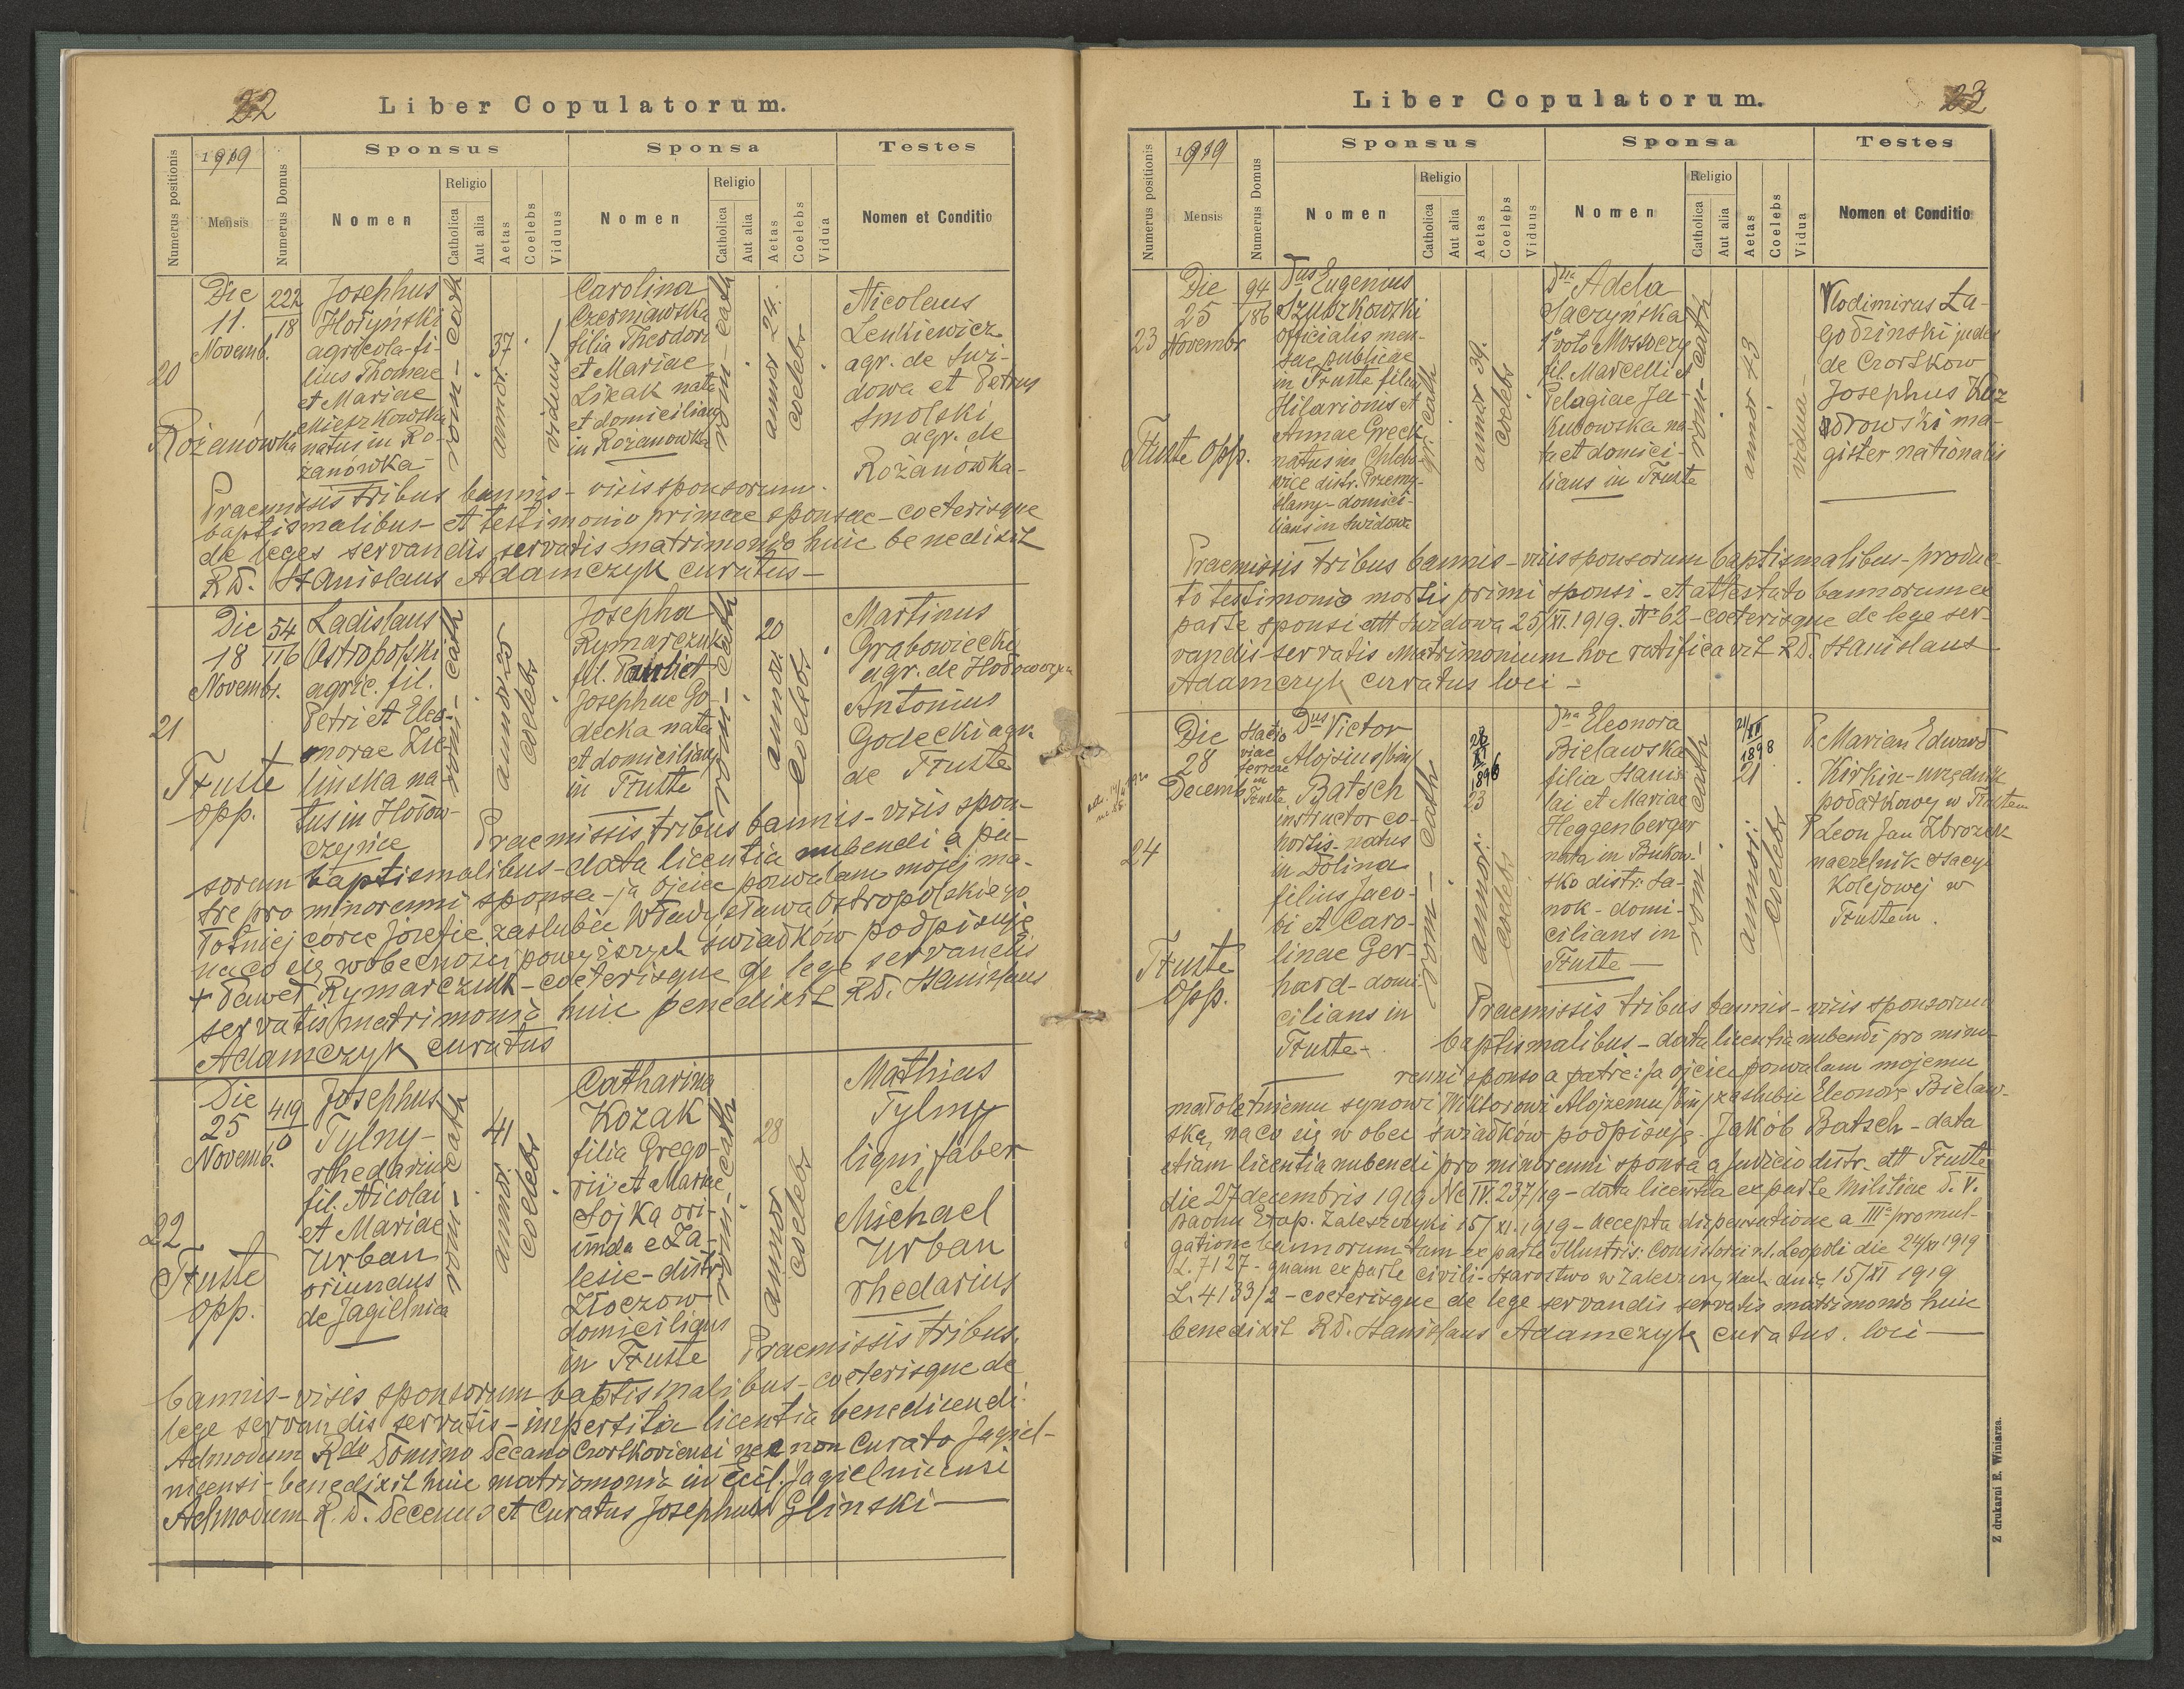 22
Liber Copulatorum.
Numerus positionis
1919
Mensis
Numerus Domus
Sponsus
Nomen
Religio
Catholica
Aut alia
Aetas
Coelebs
Viduus
Sponsa
Nomen
Religio
Catholica
Aut alia
Aetas
Coelebs
Vidua
Testes
Nomen et Conditio
20
Rożanówka
Die
11.
Novemb.
222
18
Josephus
Hołyński
agricola-fi-
lius Thomae
et Mariae
natus in Ro-
żanówka
rom - cath
annor. 37
viduus
Carolina
Czerniawska
filia Theodori
et Mariae
nata
et domicilians
in Rożanówka
rom - cath
annor 24.
coelebs
Nicolaus
Lenkiewicz
agr. de Swi-
dowa et Petrus
Smolski
agr. de
Rożanówka-
Praemissis tribus bannis - visis sponsorum
baptismalibus - et testimonio primae sponsae - coeterisque
de leges servandis servatis matrimonio huic benedixit
RD. Stanislaus Adamczyk curatus -
21
Tłuste
opp.
Die
18
Novembr.
54
116
Ladislaus
Ostropolski
agric. fil.
Petri et Eleo-
norae Zie-
lińska na-
tus in Hołow-
czyńce
rom - cath
annor 25
coelebs
Josepha
Rymarczuk
fil. Pauli et
Josephae Go-
decka nata
et domicilians
in Tłuste
rom - cath
annor. 20
coelebs
Martinus
Grabowiecki
agr. de
Antonius
Godecki agr.
de Tłuste
Praemissis tribus bannis - visis spon-
sorum baptismalibus - data licentia nubendi a pa-
tre pro minorenni sponsa - ja ojciec pozwalam mojej ma-
łotniej córce Józefie zaślubić Władysława Ostropolskiego
na co się wobecności powyższych świadków podpisuję
+ Paweł Rymarczuk - coeterisque de lege servandis
servatis matrimonio huic benedixit RD. Stanislaus
Adamczyk curatus
22
Tłuste
opp.
Die
25
Novemb.
419
0
Josephus
Tylny-
rhedarius
fil. Nicolai
et Mariae
Urban
oriundus
de Jagielnica
rom - cath
annor. 41
coelebs
Catharina
Kozak
filia Grego-
rii et Mariae
Sojka ori-
unda e Za-
lesie - distr.
Złoczow
domicilians
in Tłuste
rom - cath
annor 28
coelebs
Mathias
Tylny
ligni faber
et
Michael
Urban
rhedarius
Praemissis tribus
bannis - visis sponsorum baptismalibus - coeterisque de
lege servandis servatis - impertita licentia benedicendi
Admodum Rdo Domino Decano Czortkoviensi nec non Curato Jagiel-
nicensi - benedixit huic matrimonio in Eccl. Jagielnicensi
Admodum R. D. Decanus et Curatus Josephus Glinski
23
Liber Copulatorum.
Numerus positionis
1919
Mensis
Numerus Domus
Sponsus
Nomen
Religio
Catholica
Aut alia
Aetas
Coelebs
Viduus
Sponsa
Nomen
Religio
Catholica
Aut alia
Aetas
Coelebs
Vidua
Testes
Nomen et Conditio
23
Tłuste opp.
Die
25
Novembr
94
186
Dus Eugenius
officialis men-
sae publicae
in Tłuste filius
Hilarionis et
Annae Greck
natus in Chlebo-
wice distr. Przemy-
slany - domici-
lians in Swidowa
gr. cath
annor 39.
coelebs
Dna Adela
Saczyńska
1o voto
fil. Marcelli et
Pelagiae Ja-
kubowska na-
ta et domici-
lians in Tłuste
rom - cath
annor 43
vidua -
Vlodimirus Ła-
godzinski judex
de Czortkow
Josephus
ma-
gister nationalis
Praemissis tribus bannis - visis sponsorum baptismalibus - produc-
to testimonio mortis primi sponsi - et attestato bannorum ex
parte sponsi dtt Swidowa 25/XI.1919. No 62 - coeterisque de lege ser-
vandis servatis Matrimonium hoc ratificavit RD. Stanislaus
Adamczyk curatus loci -
24
Tłuste
Opp.
Die
28
Decemb
Statio
viae
ferreae
in
Tłuste
Dus Victor
Aloisius /bin/
Batsch
instructor co-
hortis - natus
in Dolina
filius Jaco-
bi et Caro-
linae Ger-
hard - domi-
cilians in
Tłuste -
rom - cath
1896
23
annor.
coelebs
Dna Eleonora
Bielawska
filia Stanis-
lai et Mariae
Heggenberger
nata in Bukow-
sko distr. Sa-
nok - domi-
cilians in
Tłuste -
rom - cath
21/XI
1898
21
annor.
coelebs
P Marian Edward
Kirkin - urzędnik
podatkowy w Tłustem
P Leon Jan Zbrożek
naczelnik stacyi
kolejowej w
Tłustem.
Praemissis tribus bannis - visis sponsorum
baptismalibus - data licentia nubendi pro mino-
renni sponso a patre: Ja ojciec pozwalam mojemu
małoletniemu synowi Wiktorowi Alojzemu /bin/ zaślubić Eleonorę Bielaw-
ską, na co się w obec świadków podpisuję. Jakób Batsch - data
etiam licentia nubendi pro minorenni sponsa a Judicio distr. dtt Tłuste
die 27 decembris 1919 Nc IV. 237/19 - data licentia ex parte Militiae D. V.
Etap. Zaleszczyki 15/XI.1919 - accepta dispensatione a IIIa promul-
gatione bannorum tam ex parte Illustris: Consistorii r.l. Leopoli die 24/XI 1919
L. 7127 - quam ex parte civili - Starostwo w Zaleszczykach dnia 15/XI 1919
L. 4133/2 - coeterisque de lege servandis servatis matrimonio huic
benedixit RD. Stanislaus Adamczyk curatus. loci -
Z drukarni E. Winiarza.